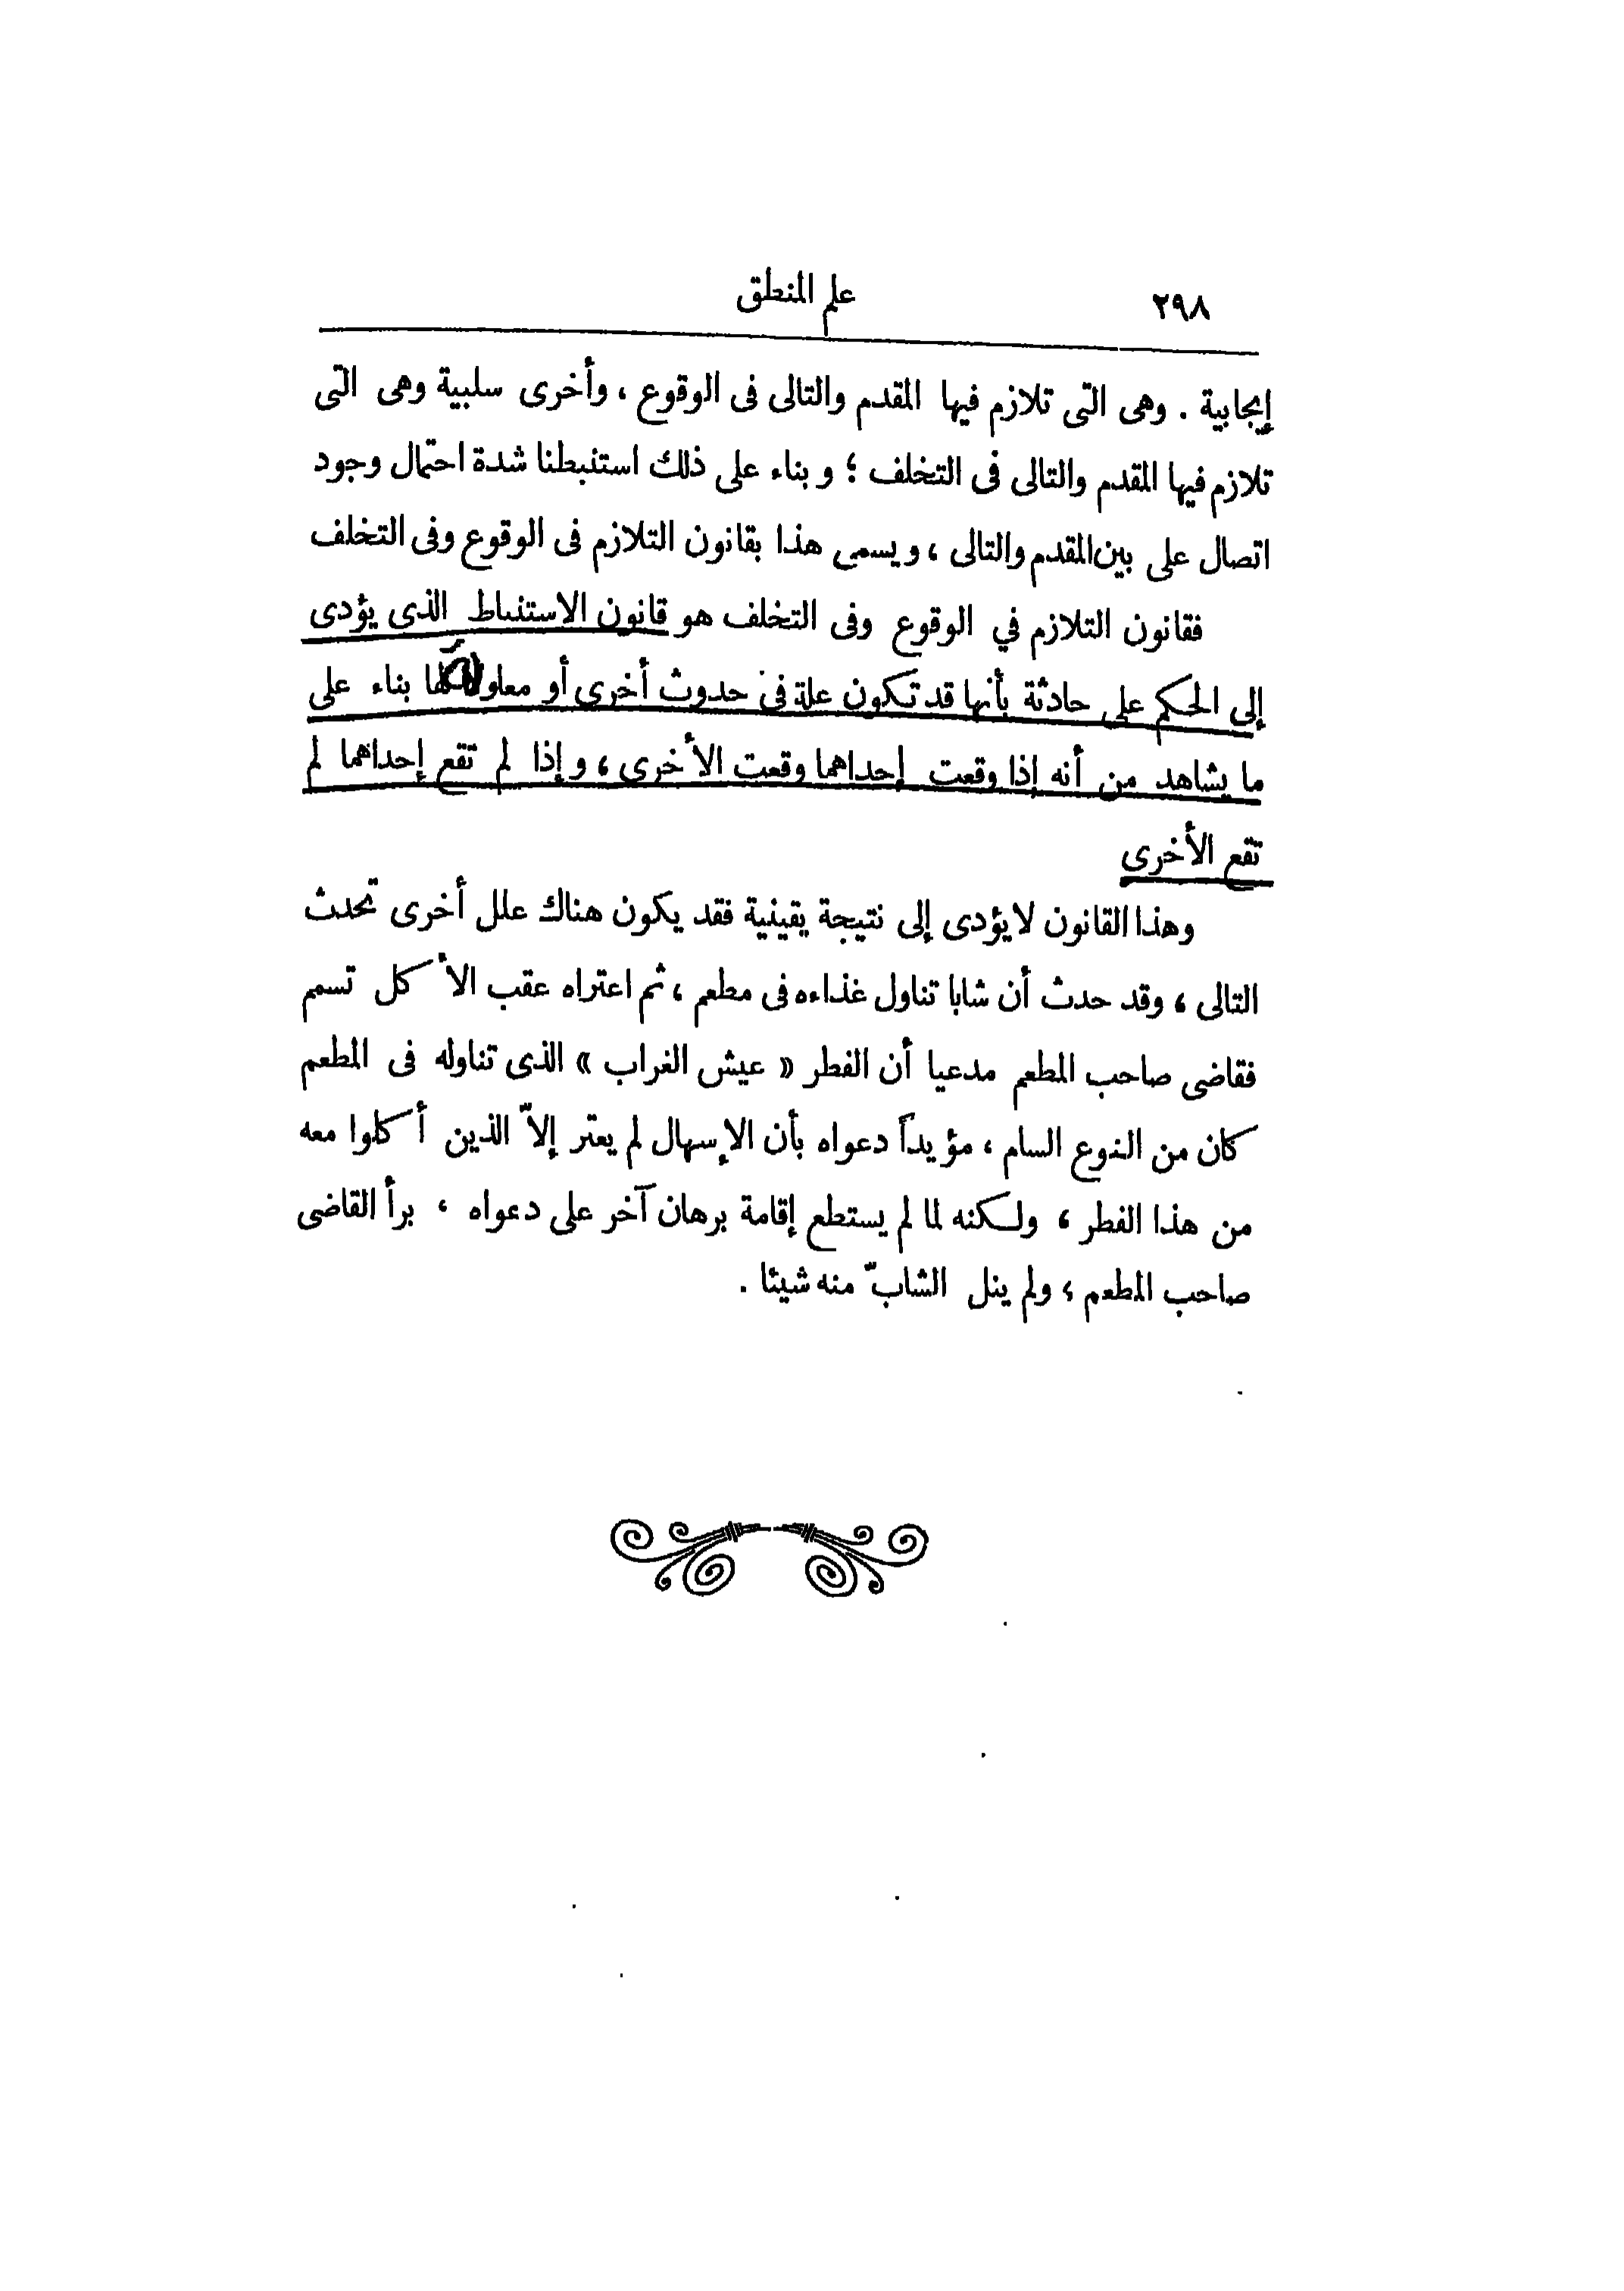 ٢٩٨
علم المنطق
إيجابية . وهى التى تلازم فيها المقدم والتالى فى الوقوع ، وأخرى سلبية وهى التى
تلازم فيها المقدم والتالى فى التخلف ؛ وبناء على ذلك استنبطنا شدة احتمال وجود
اتصال على بين المقدم والتالى ، ويسمى هذا بقانون التلازم فى الوقوع وفى التخلف
فقانون التلازم في الوقوع وفى التخلف هو قانون الاستنباط الذى يؤدى
إلى الحكم على حادثة بأنها قد تكون علة فى حدوث أخرى أو معلولا لها بناء على
ما يشاهد من أنه إذا وقعت إحداهما وقعت الأخرى ، وإذا لم تقع إحداهما لم
تقع الأخرى
وهذا القانون لا يؤدى إلى نتيجة يقينية فقد يكون هناك علل أخرى تحدث
التالى ، وقد حدث أن شابا تناول غذاءه فى مطعم ، ثم اعتراه عقب الأكل تسمم
فقاضى صاحب المطعم مدعيا أن الفطر « عيش الغراب » الذى تناوله فى المطعم
كان من النوع السام ، مؤيداً دعواه بأن الإسهال لم يعتر إلاّ الذين أكلوا معه
من هذا الفطر ، ولكنه لما لم يستطع إقامة برهان آخر على دعواه ، برأ القاضى
صاحب المطعم ، ولم ينل الشابّ منه شيئا .